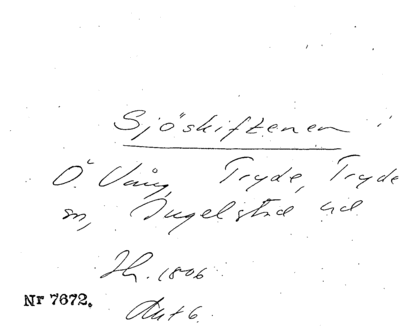 Sjöskiftenen
Ö. Vång, Tryde, Tryde
sn, Ingelstad hd
Jh. 1806
Akt 6.
Nr 7672.